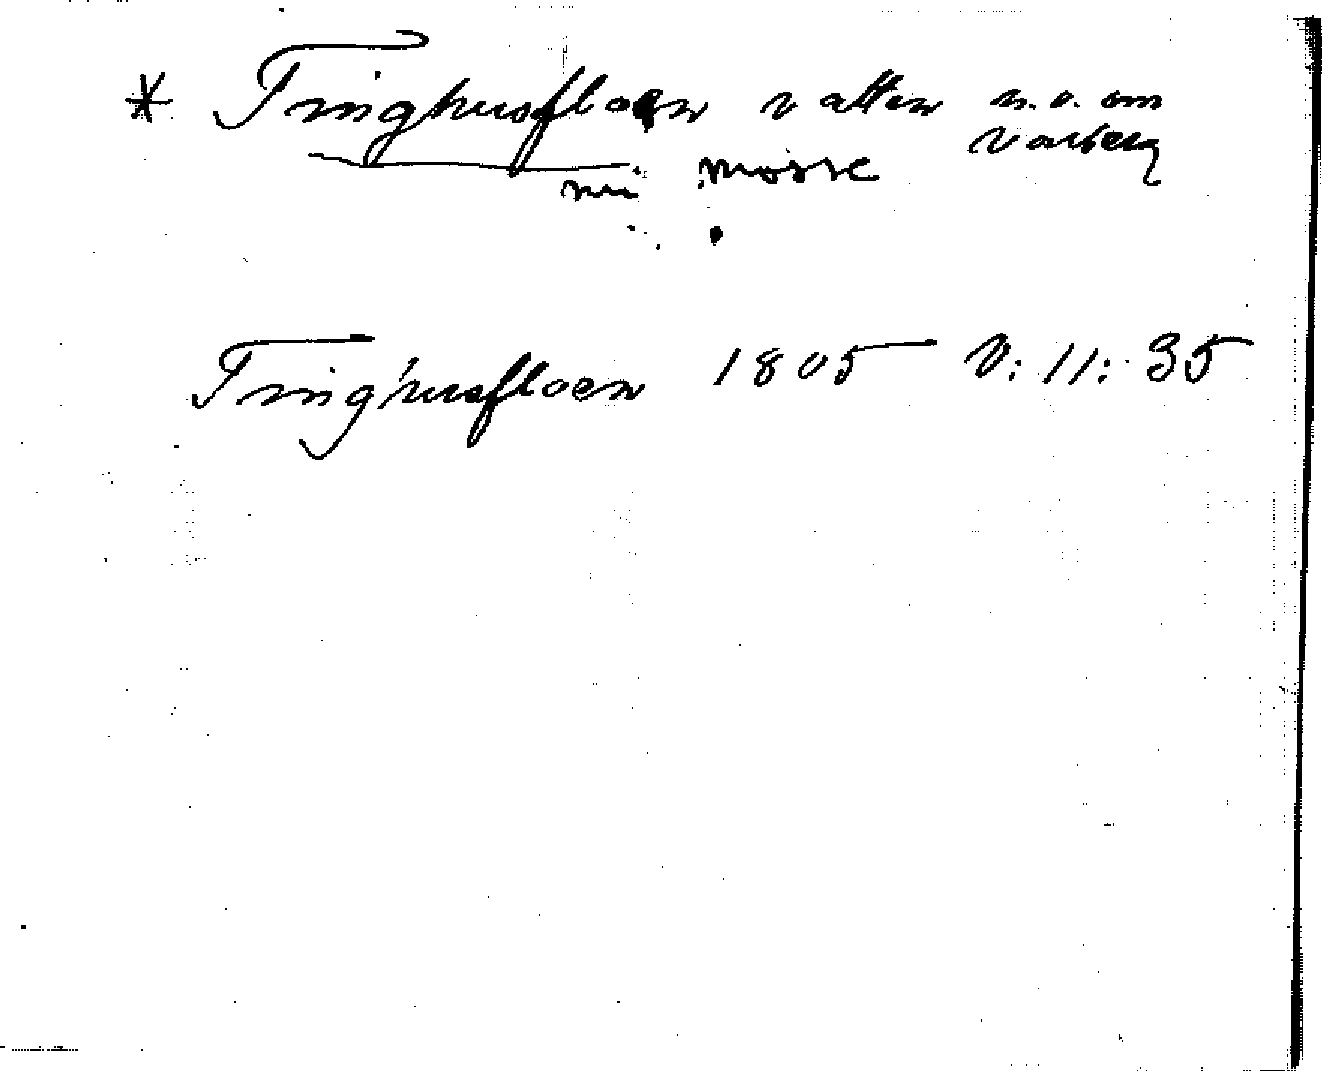 * Tinghusfloen vatten n.v. om
Varberg
nu mosse
Tinghusfloen 1805 V: 11: 35